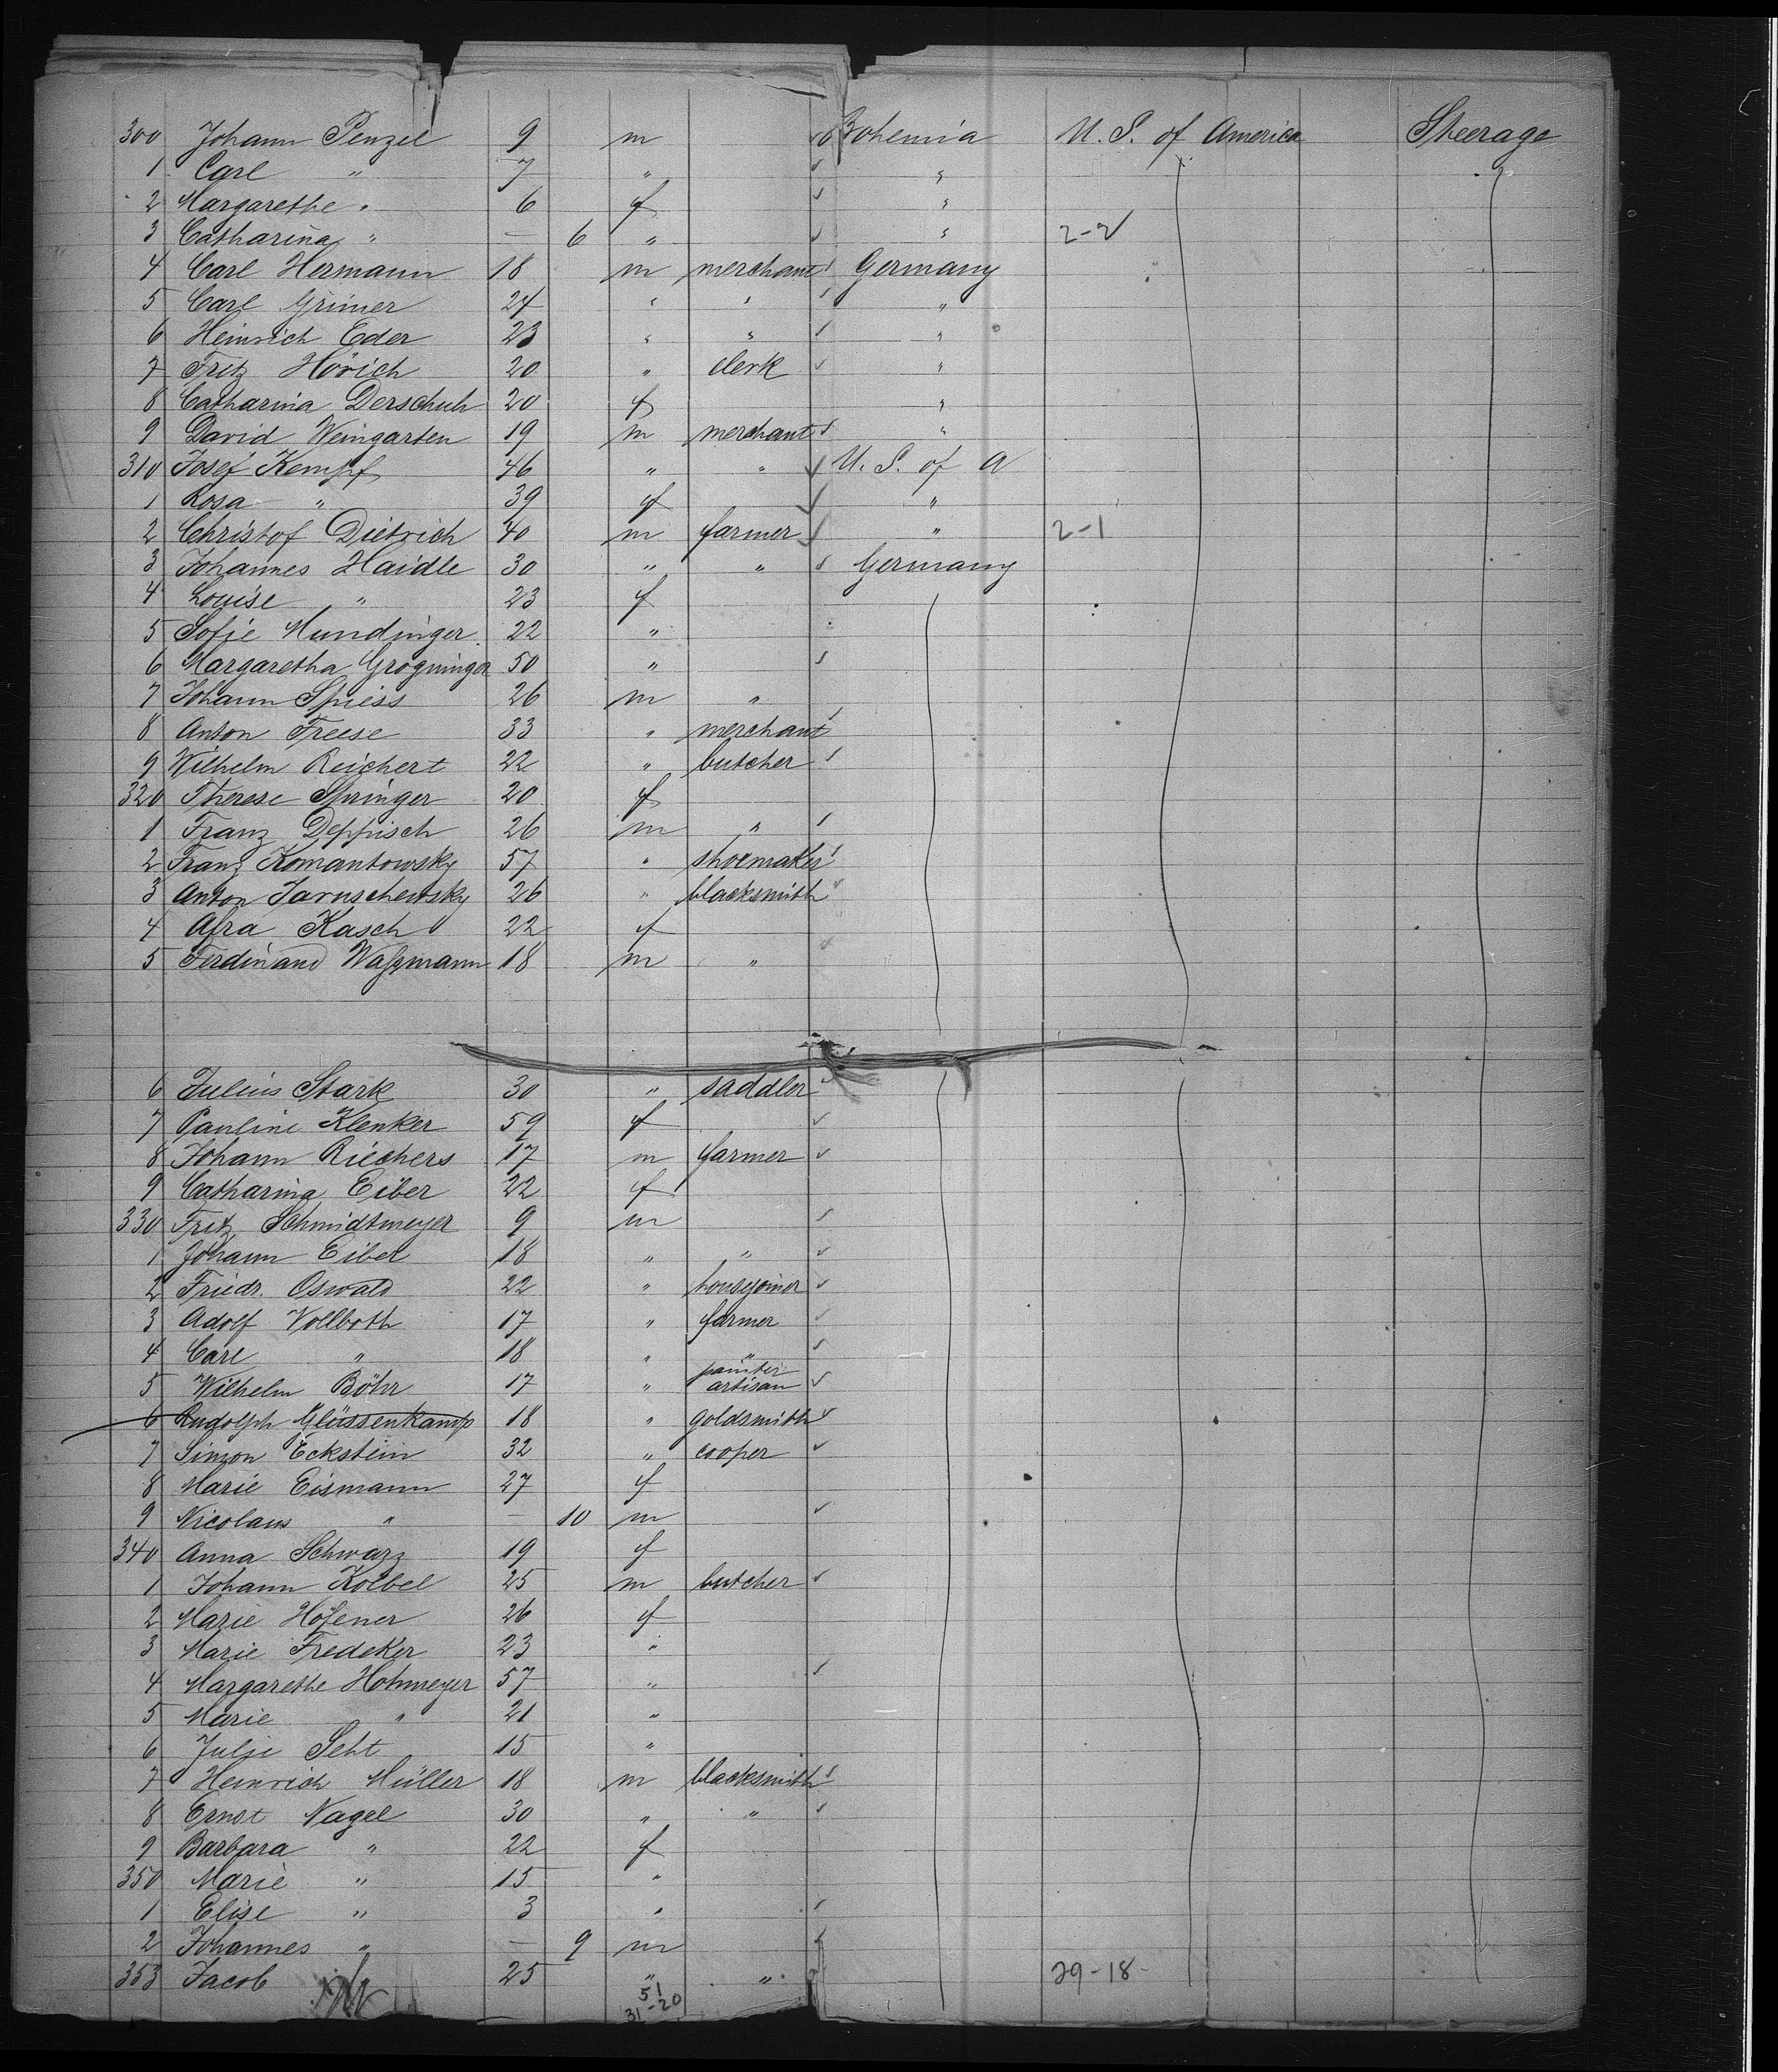 300 Johann Penzel 9 m Bohemia U. S. of America Steerage
1 Carl " 7 " "
2 Margarethe " 6 f "
3 Catharina " — 6 " " 2-2
4 Carl Hermann 18 m merchant Germany
5 Carl Grüner 24 " " "
6 Heinrich Eder 23 " " "
7 Fritz Hörich 20 " clerk "
8 Catharina Derschuh 20 f "
9 David Weingarten 19 m merchant "
310 Josef Kempf 46 " " U. S. of A
1 Rosa " 39 f "
2 Christof Dietrich 40 m farmer " 2-1
3 Johannes Haidle 30 " " Germany
4 Louise " 23 f
5 Sofie Mundinger 22 "
6 Margaretha Grogninger 50 "
7 Johann Spiess 26 m "
8 Anton Freese 33 " merchant
9 Wilhelm Reichert 22 " butcher
320 Therese Springer 20 f
1 Franz Deppisch 26 m "
2 Franz Komantowsky 57 " shoemaker
3 Anton Jaruschewsky 26 " blacksmith
4 Afra Kasch 22 f
5 Ferdinand Waßmann 18 m "
6 Julius Stark 30 " saddler
7 Pauline Klenker 59 f
8 Johann Riechers 17 m farmer
9 Catharina Eiber 22 f
330 Fritz Schmidtmeyer 9 m
1 Johann Eiber 18 " "
2 Friedr. Oswald 22 " housejoiner
3 Adolf Vollboth 17 " farmer
4 Carl " 18 " "
5 Wilhelm Böhr 17 " painter artisan
6 Rudolph Glüssenkamp 18 " goldsmith
7 Simon Eckstein 32 " cooper
8 Marie Eismann 27 f
9 Nicolaus " — 10 m
340 Anna Schwarz 19 f
1 Johann Kölbel 25 m butcher
2 Marie Höfener 26 f
3 Marie Fredeker 23 "
4 Margarethe Hohmeyer 57 "
5 Marie " 21 "
6 Julie Seht 15 "
7 Heinrich Müller 18 m blacksmith
8 Ernst Nagel 30 " "
9 Barbara " 22 f
350 Marie " 15 "
1 Elise " 3 "
2 Johannes " — 9 m
353 Jacob 25 " " 29-18-
51
31-20